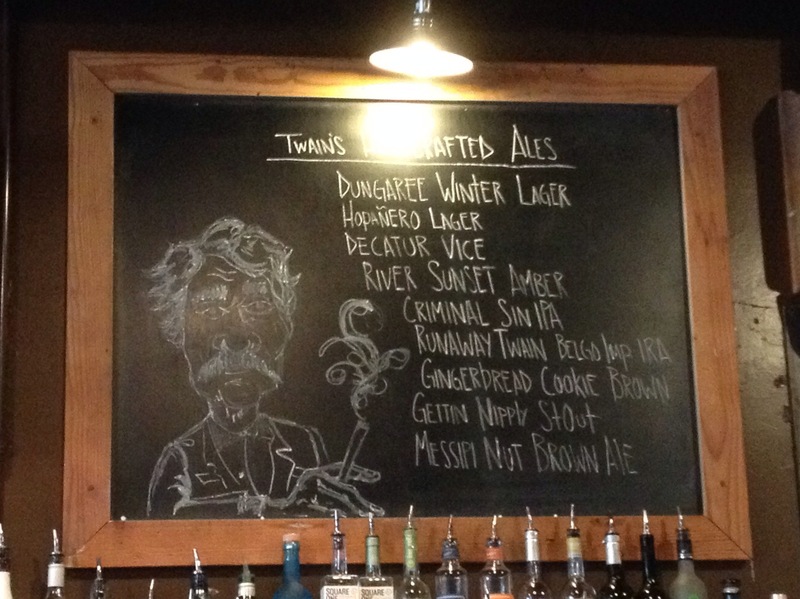 TWAIN'S CRAFTED ALES
DUNGAREE WINTER LAGER
HOPAÑERO LAGER
DECATUR VICE
RIVER SUNSET AMBER
CRIMINAL SIN IPA
RUNAWAY TWAIN BELGO IMP. IRA
GINGERBREAD COOKIE BROWN
GETTIN NIPPLY STOUT
MESSIPI NUT BROWN ALE
SQUARE SQUARE